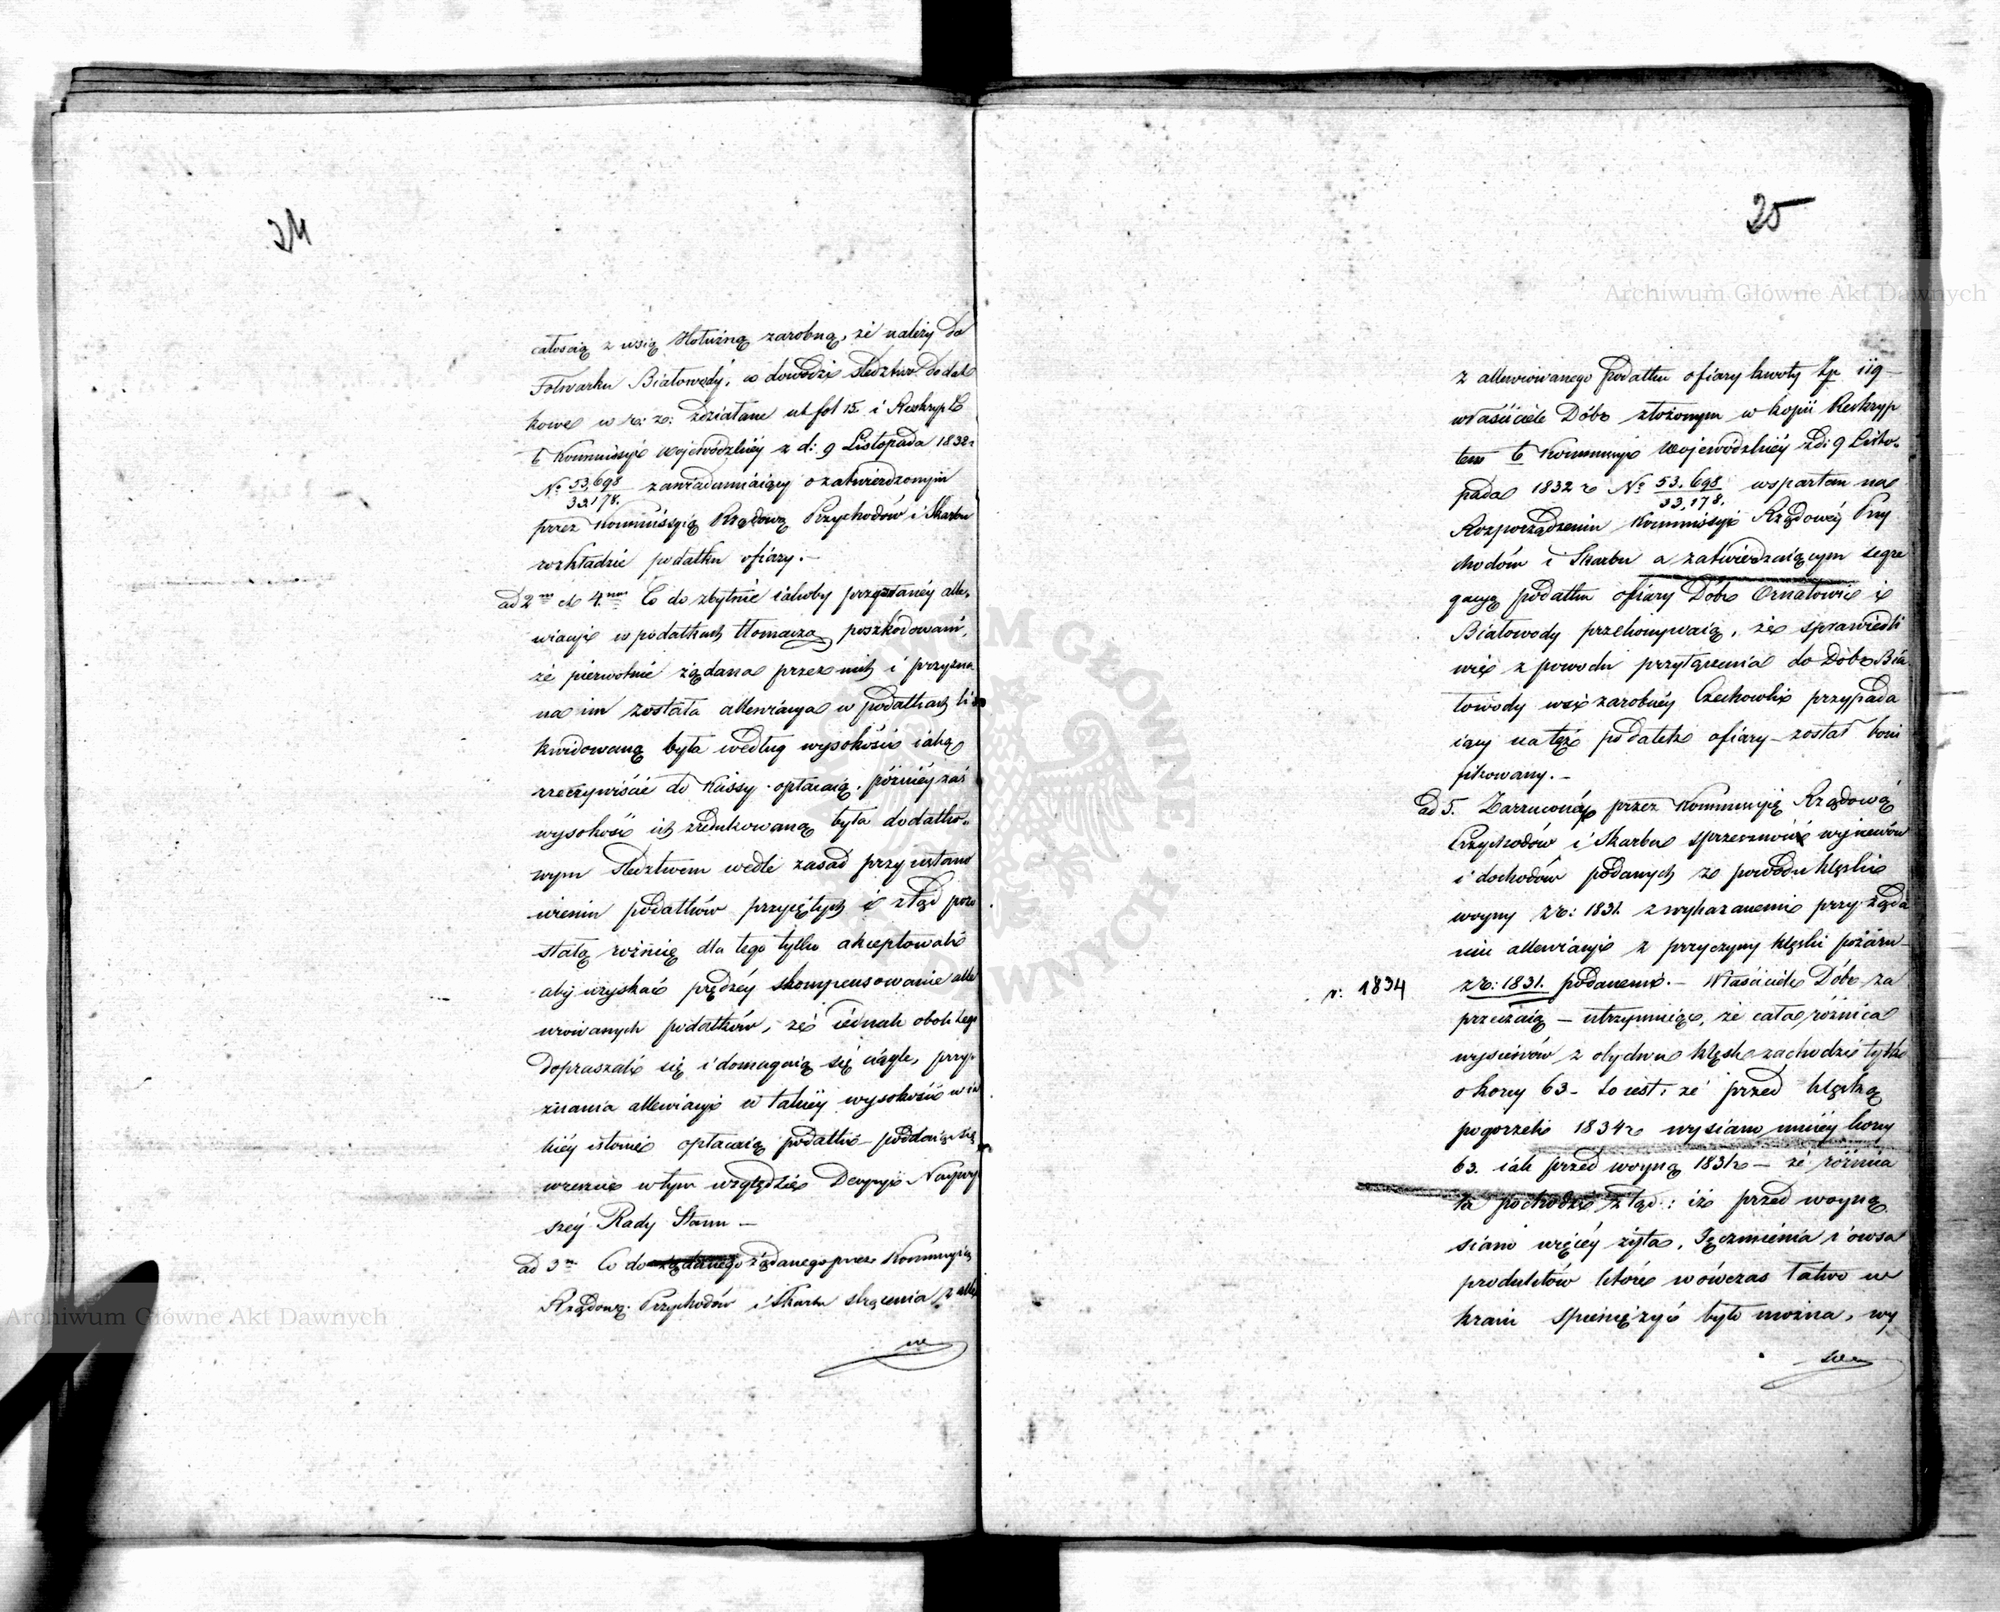 24
całością z wsią Hołużną zarobną, że należy do
Folwarku Białowody, w dowodzie śledztwo dodat
kowe w r: z: zdziałane ut fol 15 i Reskrypt
b Kommissyi Wojewódzkiéy z d: 9 Listopada 1832 r
No 53,698/33,178. zawiadamiaiący o zatwierdzonym
przez Kommissyią Rządową Przychodów i Skarbu
rozkładzie podatku ofiary.–
ad 2m et 4num Co do zbytnie iakoby przyznanéy alle-
wiacyi w podatkach tłomaczą poszkodowani,
że pierwotnie żądana przez nich i przyzna
na im została allewiacya w podatkach li
kwidowaną była według wysokości iaką
rzeczywiście do Kassy opłacaią, późniéy zaś
wysokość ich zredukowaną była dodatko-
wym śledztwem wedle zasad przy ustano
wieniu podatków przyiętych i ztąd pozo
stałą różnicę dla tego tylko akceptowali
aby uzyskać prędzéy skompensowanie alle
wiowanych podatków, że iednak obok tego
dopraszali się i domagaią się ciągle, przy-
znania allewiacyi w takiéy wysokości w ia
kiéy istotnie opłacaią podatki – poddaią się
wreszcie w tym względzie Decyzyi Naywyż
széy Rady Stanu –
ad 3m Co do żądanego przez Kommissyią
Rządową Przychodów i Skarbu strącenia z alle
25
z allewiowanego podatku ofiary kwoty Zp 119 –
właściciele Dóbr złożonym w kopii Reskryp
tem b Kommissyi Wojewódzkiéy z d: 9 Listo-
pada 1832 r No 53,698/33,178. wspartem na
Rozporządzeniu Kommissyi Rządowéy Przy
chodów i Skarbu a zatwierdzaiącym segre
gacyą podatku ofiary Dóbr Ornatowic i
Białowody przekonywaią, że sprawiedli
wie z powodu przyłączenia do Dóbr Bia
łowody wsi zarobnéy Czechowki przypada
iący na tęż podatek ofiary – został boni
fikowany. –
ad 5. Zarzuconéy przez Kommissyią Rządową
Przychodów i Skarbu sprzeczności wysiewów
i dochodów podanych z powodu klęski
woyny z r: 1831. z wykazanemi przy żąda
niu allewiacyi z przyczyny klęski pożaru
r: 1834
z r: 1831. podanemi. – Właściciele Dóbr za
przeczaią – utrzymuiąc, że cała różnica
wysiewów z obydwu klęsk zachodzi tylko
o korcy 63 – to iest, że przed klęską
pogorzeli 1834 r wysiano mniéy korcy
63. iak przed woyną 1831 r – że różnica
ta pochodzi ztąd: iż przed woyną
siano więcéy żyta, Jęczmienia i owsa
produktów które wówczas łatwo w
kraiu spieniężyć było można, wy